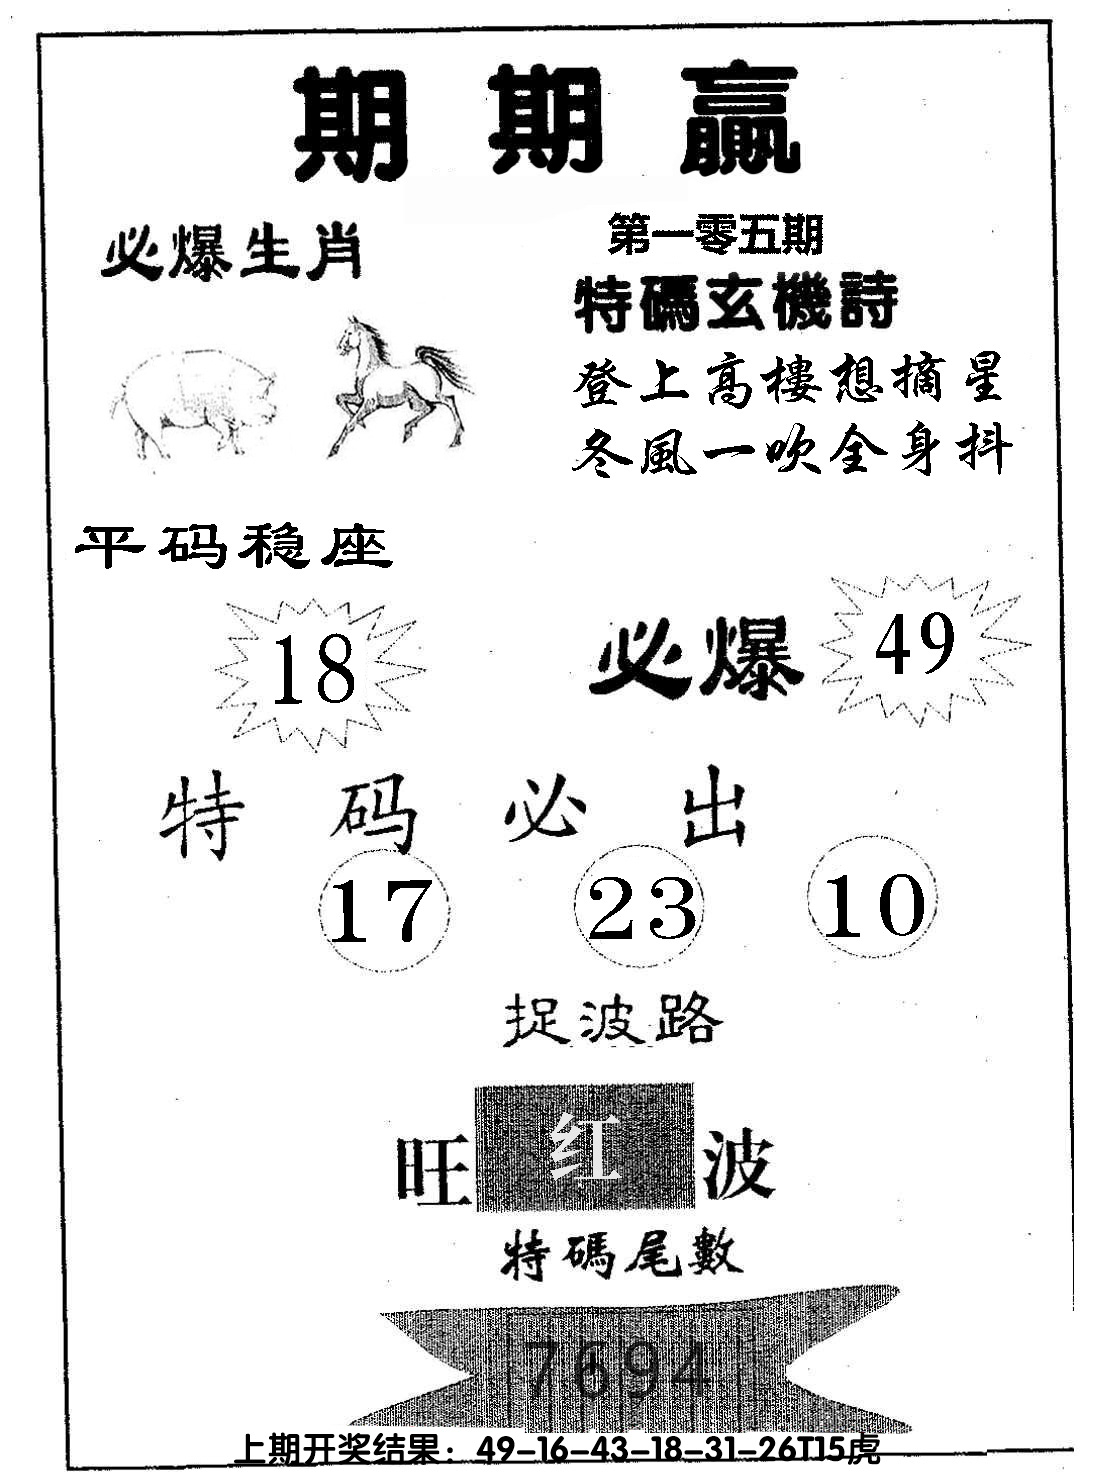 期期赢
必爆生肖
第一零五期
特碼玄機詩
登上高樓想摘星
冬風一吹全身抖
平码稳座
18
必爆
49
特码必出
17 23 10
捉波路
旺红波
特碼尾數
7694
上期开奖结果：49-16-43-18-31-26T15虎